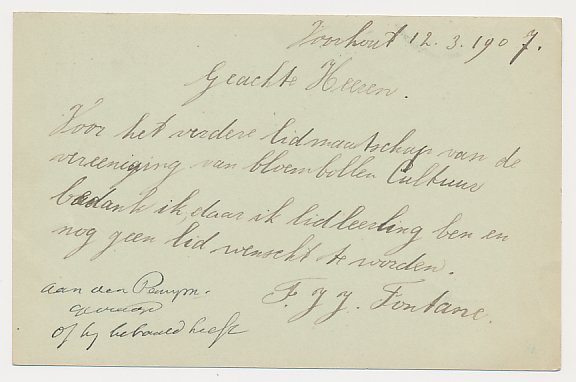 Voorhout 12.3.1907.
Geachte Heeren.
Voor het verdere lidmaatschap van de
vereeniging van bloembollen Cultuur
bedank ik, daar ik lid leerling ben en
nog geen lid wenscht te worden.
F. J. J. Fontane.
aan den Penngm.
gevraagd
of hij betaald heeft